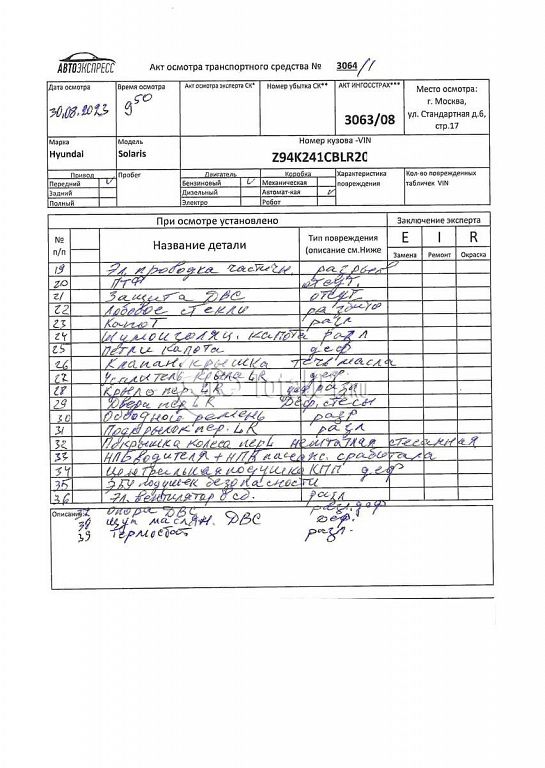 АВТОЭКСПРЕСС
Акт осмотра транспортного средства № 3064/1
Дата осмотра Время осмотра Акт осмотра эксперта СК* Номер убытка СК** АКТ ИНГОССТРАХ*** Место осмотра:
30.08.2023 9 50 3063/08 г. Москва,
ул. Стандартная д.6,
стр.17
Марка Модель Номер кузова -VIN
Hyundai Solaris Z94K241CBLR20
Привод Пробег Двигатель Коробка Характеристика повреждения Кол-во поврежденных табличек VIN
Передний V Бензиновый V Механическая
Задний Дизельный Автомат-кая V
Полный Электро Робот
При осмотре установлено Заключение эксперта
№ п/п Название детали Тип повреждения (описание см.Ниже E I R
Замена Ремонт Окраска
19 Эл. проводка частичн. разрыв
20 ПТФ отсут.
21 Защита ДВС отсут.
22 Лобовое стекло разбито
23 Капот разл
24 Шумоизоляц. капота разл
25 Петли капота деф
26 Клапан. крышка течь масла
27 Усилитель крыла LR деф.
28 Крыло пер. LR деф разл
29 Двери пер LR Деф, стесы
30 ремень разр
31 Подкрылок пер. LR разл
32 Покрышка колеса пер L нештатная стесанная
33 НПБ водителя + НПБ пассажс. сработала
34 Центральная подушка КПП деф
35 ЭБУ подушек безопасности
36 Эл. вентилятор в сб. разл
Описание: 37 опора ДВС разл, деф
38 щуп маслян. ДВС Деф.
39 Термостат разл.